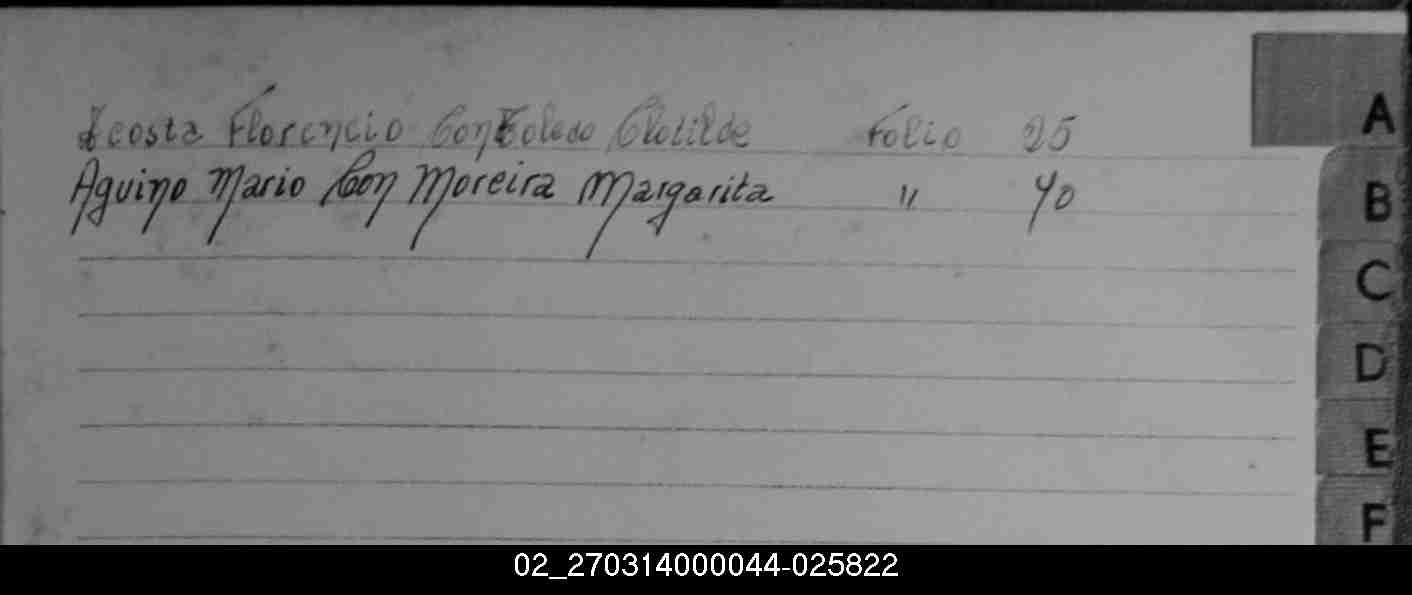 Acosta Florencio Con Toledo Clotilde Folio 25
Aquino Mario Con Moreira Margarita " 40
A
B
C
D
E
F
02_270314000044-025822